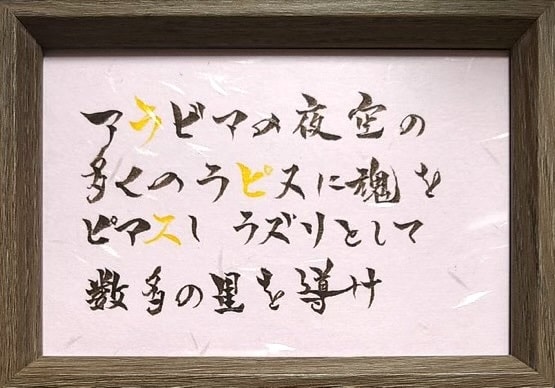 アラビアの夜空の
多くのラピスに魂を
ピアスし ラズリとして
数多の星を導け